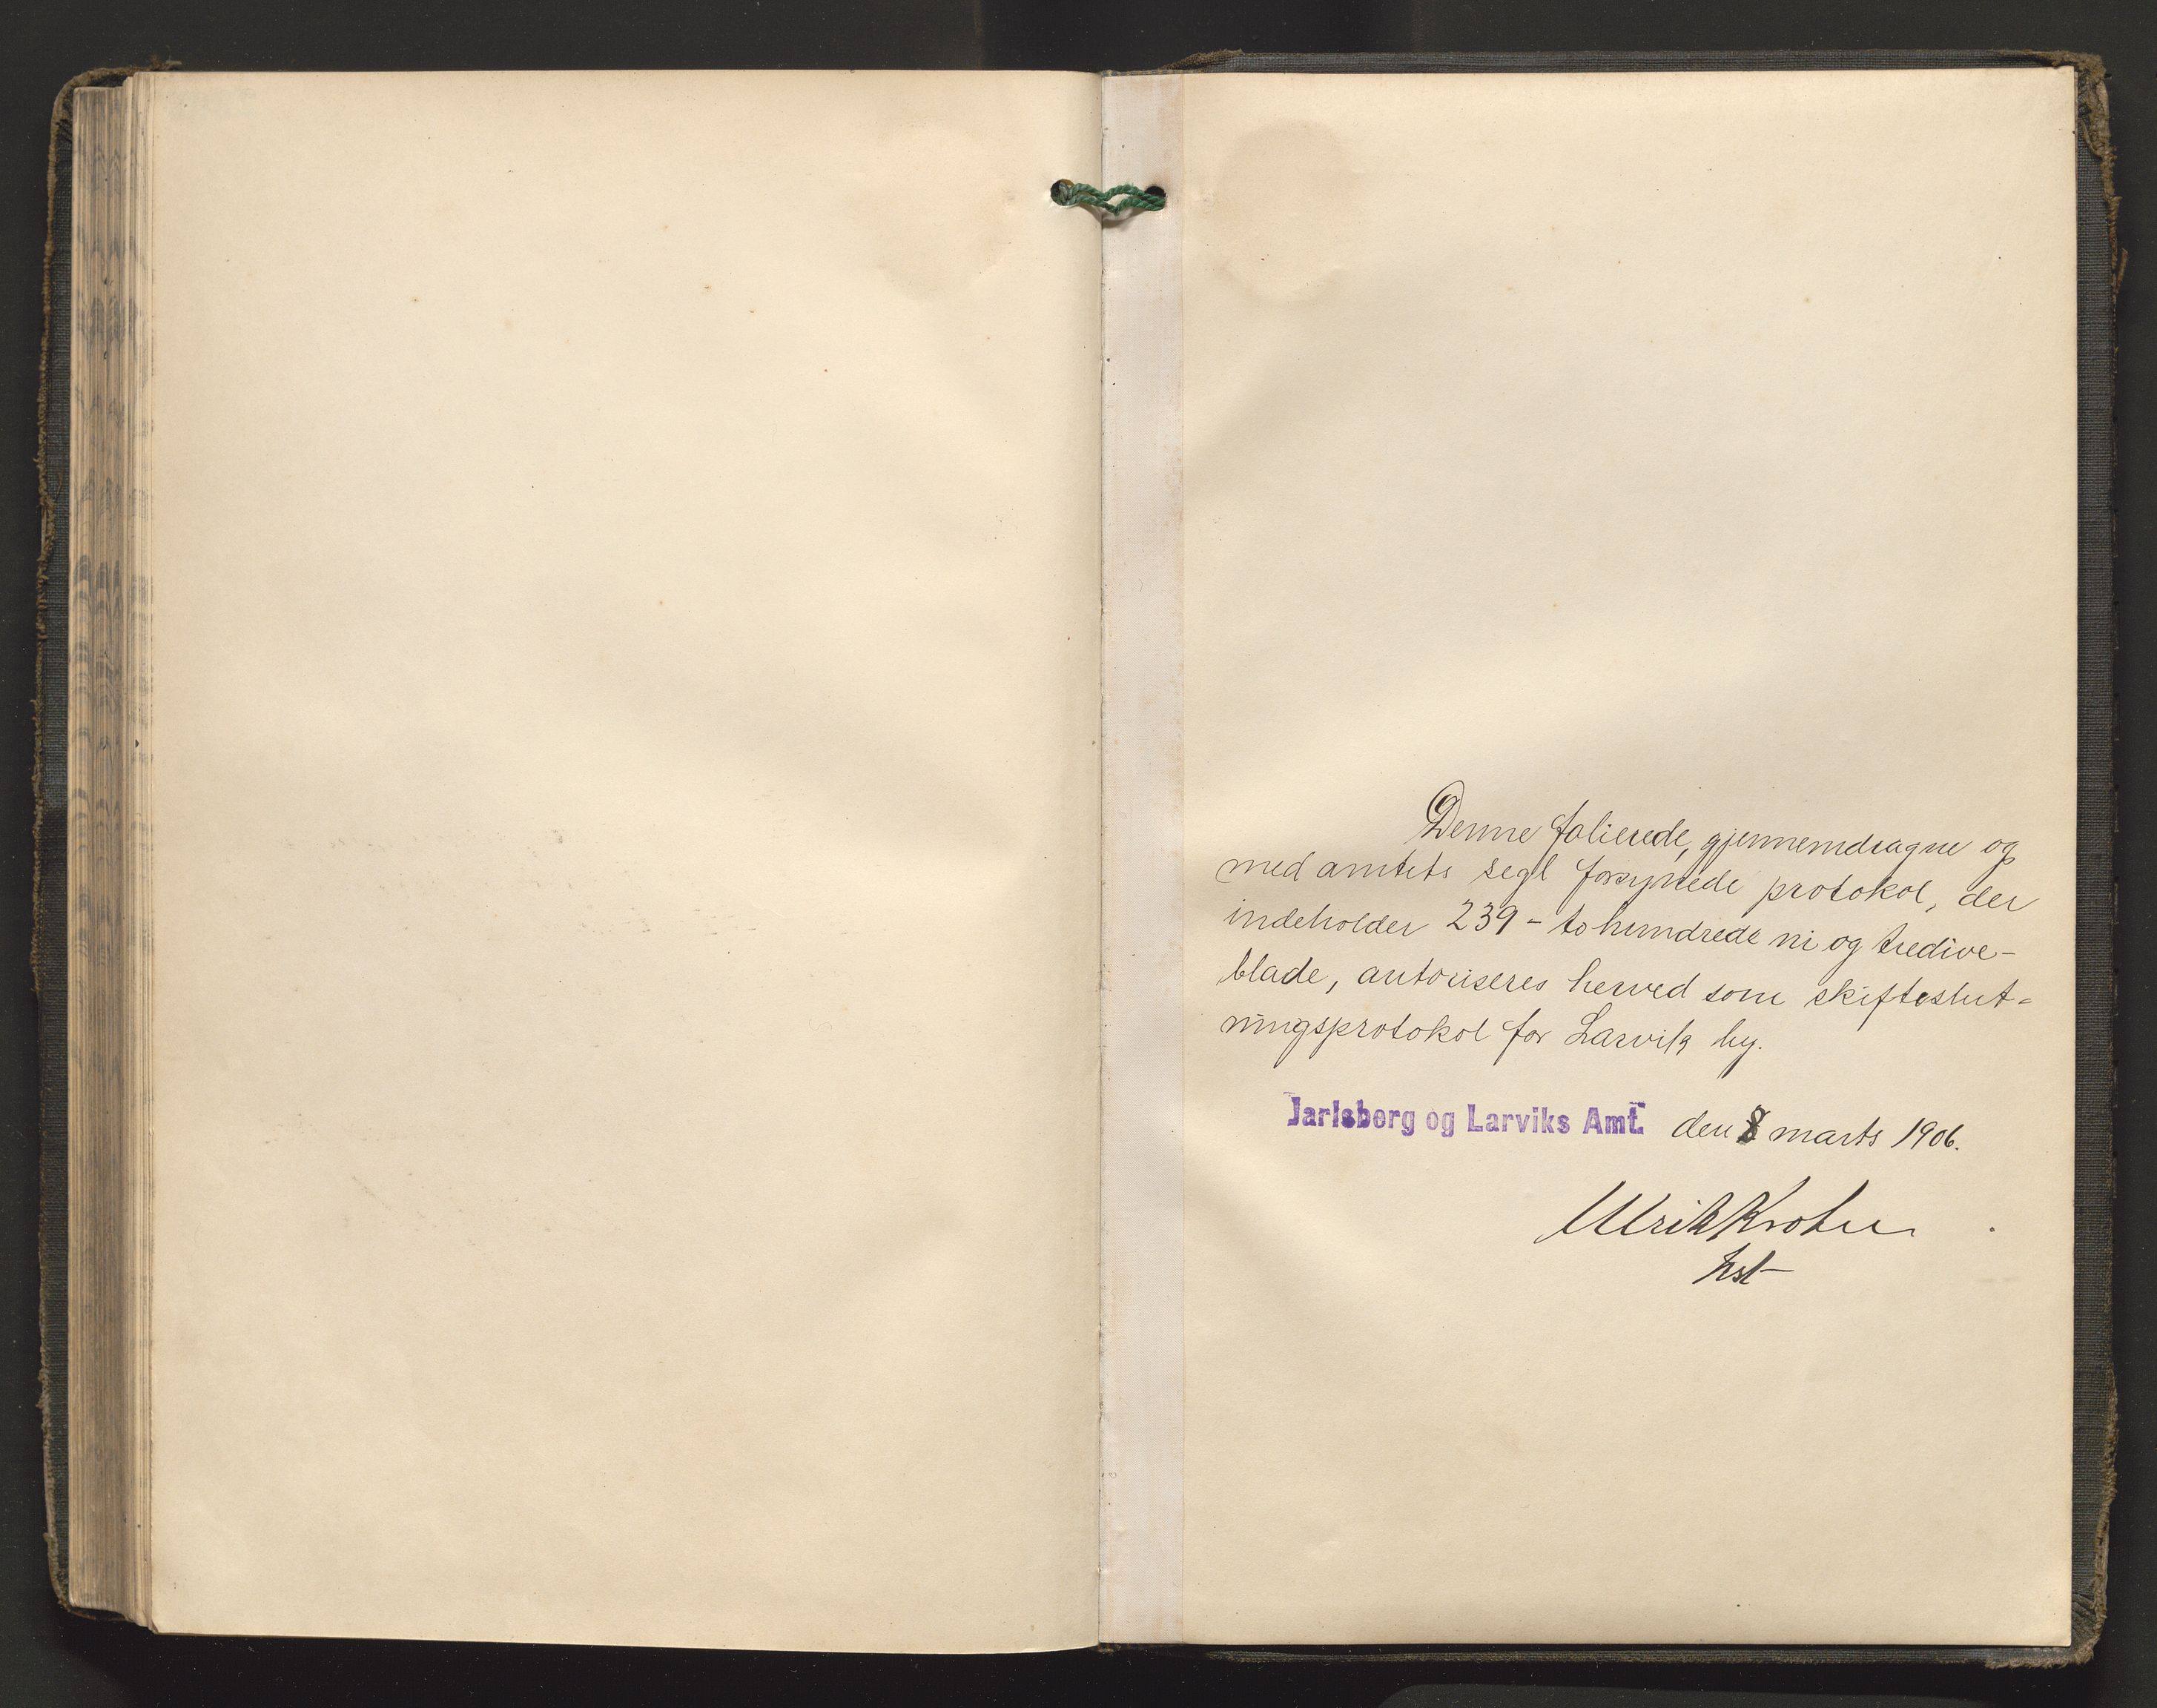 Denne folierede, gjennemdragne og
med amtets segl forsynede protokol, der
indeholder 239 - to hundrede ni og tredive -
blade, autoriseres herved som skifteslut-
ningsprotokol for Larvik by.
Jarlsberg og Larviks Amt. den 8 marts 1906.
Ulrik Krohn
kst